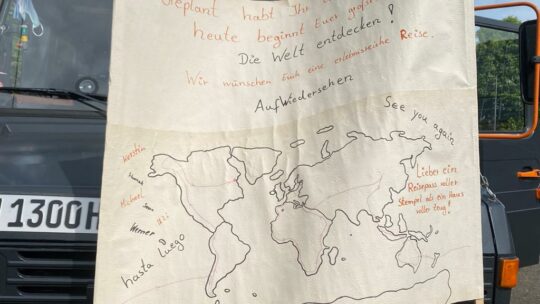 Geplant habt Ihr
heute beginnt Euer
Die Welt entdecken!
Wir wünschen Euch eine erlebnisreiche Reise.
Auf Wiedersehen
See you again
Kerstin
Hannah
Michael
Sam
Werner Uli
hasta luego
Lieber ein
Reisepass voller
Stempel als ein Haus
voller Zeug!
1300H